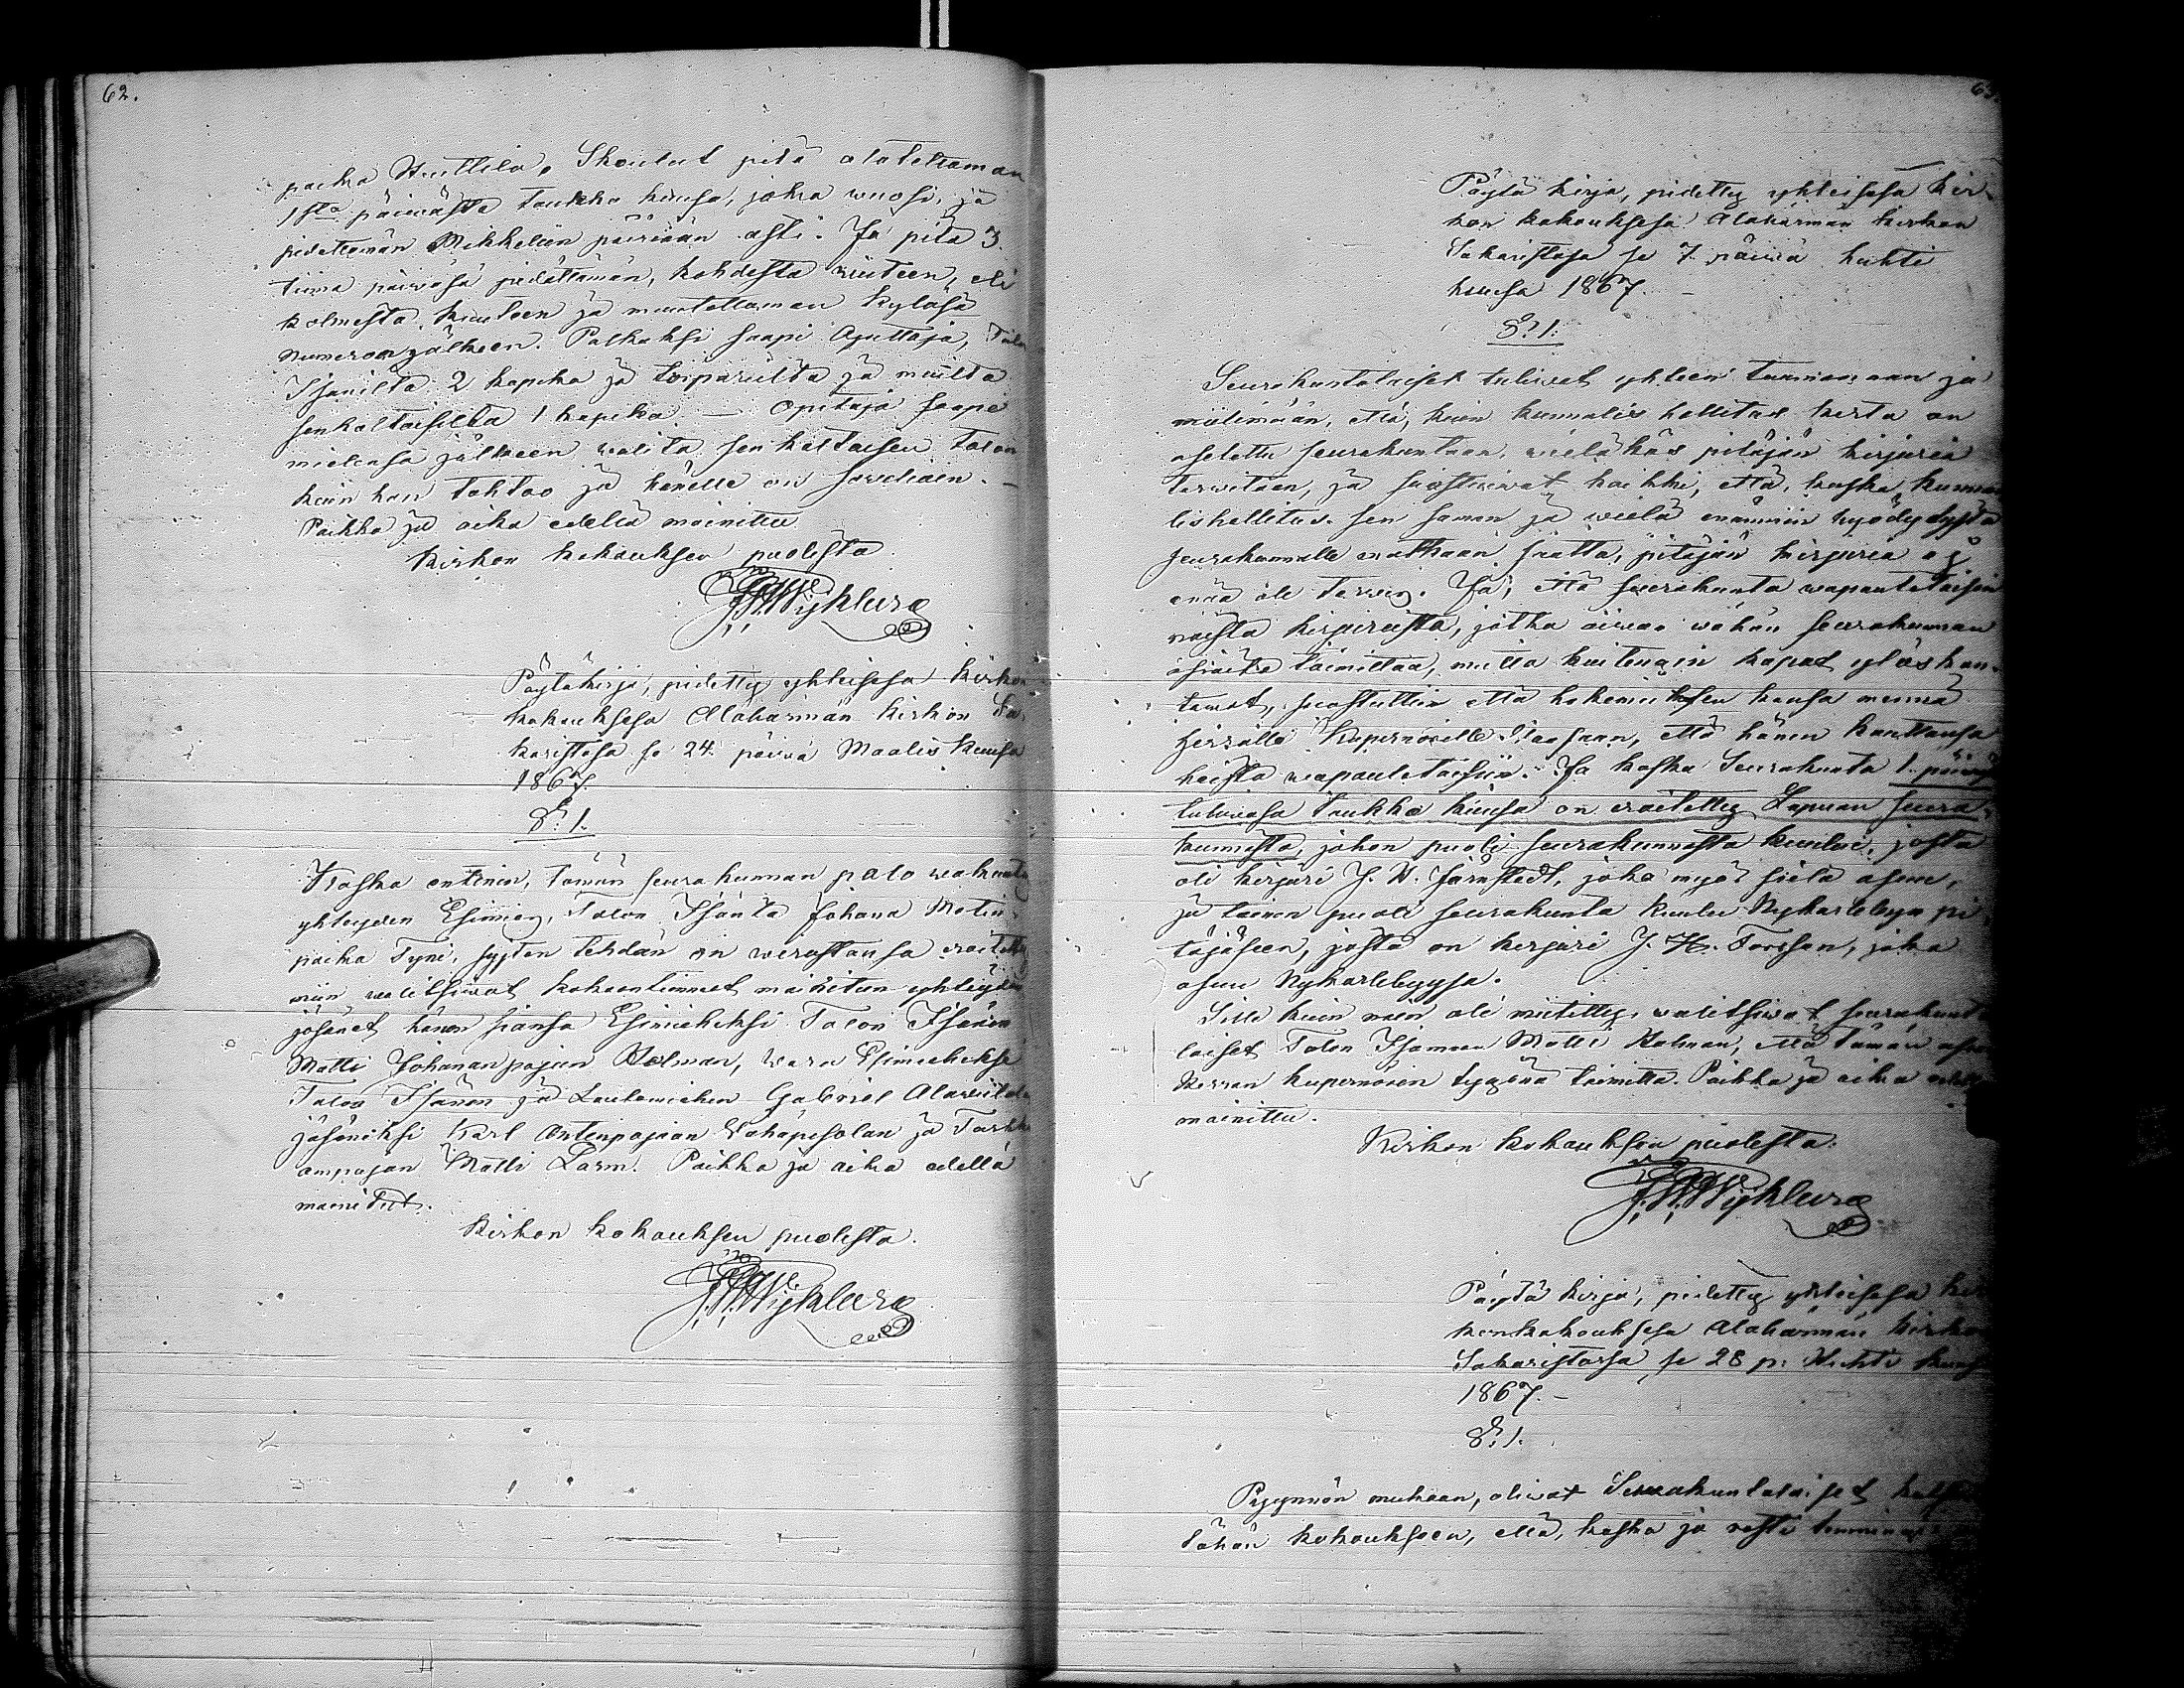 62.
paika Huttila. Skoulut pitä aloteltaman
1sta päiwästä Toukko kuusa, joka wuosi, ja
pidettämän Mikkelin päiwään asti. Ja pitä 3.
tiima päiwäsä pidättämän, kahdesta wiiteen, eli
kolmesta kuuteen ja muutettaman Kyläsä
Numeron jälkeen. Palkaksi saapi Opettaja, Talon
Isänilta 2 kapika ja torpariilta ja muilta
senkaltaisilta 1 kapika. — Opitaja saapi
mielensä jälkeen walita senkaltaisen talon
kuin han tahtoo ja hänelle on soweliain. —
Paikka ja aika edellä mainittu
Kirkon kokouksen puolesta
J. W. Wijklura
Pöytäkirja, pidetty yhteisesä Kirkon
kokouksesa Alahärmän kirkon Sa-
karistosa se 24. päiwä Maalis kuusa
1867.
§. 1.
Koska entinen, tämän seurakunnan palo wakuutus
yhteyden Esimies, Talon Isäntä Johana Matin-
poika Tyni, syystä tehdän on wirastansa eroitettu
niin walitsiwat kokoontunnet mainitun yhteyden
jäsänet hänen siansa Esimieheksi Talon Isänän
Matti Johananpojan Kolman, wara Esimieheksi
Talon Isänän ja Lautamiehen Gabriel Alawiitala
jäseniksi Karl Antinpojan Wähäpesolan ja Tarkk
ampujan Matti Larm. Paikka ja aika edellä
mainitut.
Kirkon kokouksen puolesta.
J. W. Wijklura
63.
Pöytä kirja, pidetty yhteisesä kir-
kon kokouksesa Alahärmän kirkon
Sakaristosa se 7. päiwä huhti
kuusa 1867. —
§. 1.
Seurakuntalaiset tuliwat yhteen tuumaamaan ja
miitimään, että, kuin kunnalis hallitus kerta on
asetettu seurakuntaan, wieläkäs pitäjän kirjuria
tarwitaan, ja suostuiwat kaikki, että, koska kunna
lishallitus sen saman ja wielä enämmin hyödydystä
seurakunnalle matkaan saatta, pitäjän kirjuria ej
enää ole tarwis. Ja, että seurakunta wapautetaisin
näistä kirjureista, jotka aiwan wähän seurakunnan
asioita toimittaa, mutta kuitengin kapat ylöskan-
tawat, suostuttiin että hakemuksen kansa mennä
herralle Kupernörille Waasaan, että hänen kauttansa
heistä wapautetaisiin. Ja koska Seurakunta 1. päiwä
tulewasa toukko kuusa on eroitettu Lapuan seura-
kunnasta, johon puoli seurakunnasta kuului, josta
oli kirjuri J. W. Järnstedt, joka myös sielä asuu,
ja toinen puoli seurakunta kuului Nykarlebyn pi-
täjäseen, josta on kirjuri J. H. Forssan, joka
asuu Nykarlebyysa.
Sitte kuin näin oli miititty, walitsiwat seurakunta
laiset Talon Isännän Matti Kolman, että tämän asian
Herran kupernörin tygönä toimitta. Paikka ja aika edellä
mainittu.
Kirkon kokouksen puolesta.
J. W. Wijklura
Pöytä kirja, pidetty yhteisesä kir
konkokouksesa Alahärmän kirkon
Sakaristossa se 28 p: Huhti kuusa
1867. —
§. 1.
Pyynnön mukaan, oliwat Seurakuntalaiset
tähän kokoukseen, että, koska ja